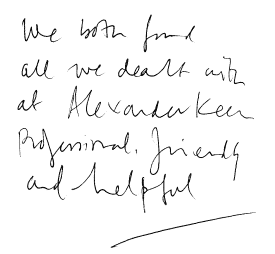 We both found
all we dealt with
at Alexander Keen
Professional, friendly
and helpful